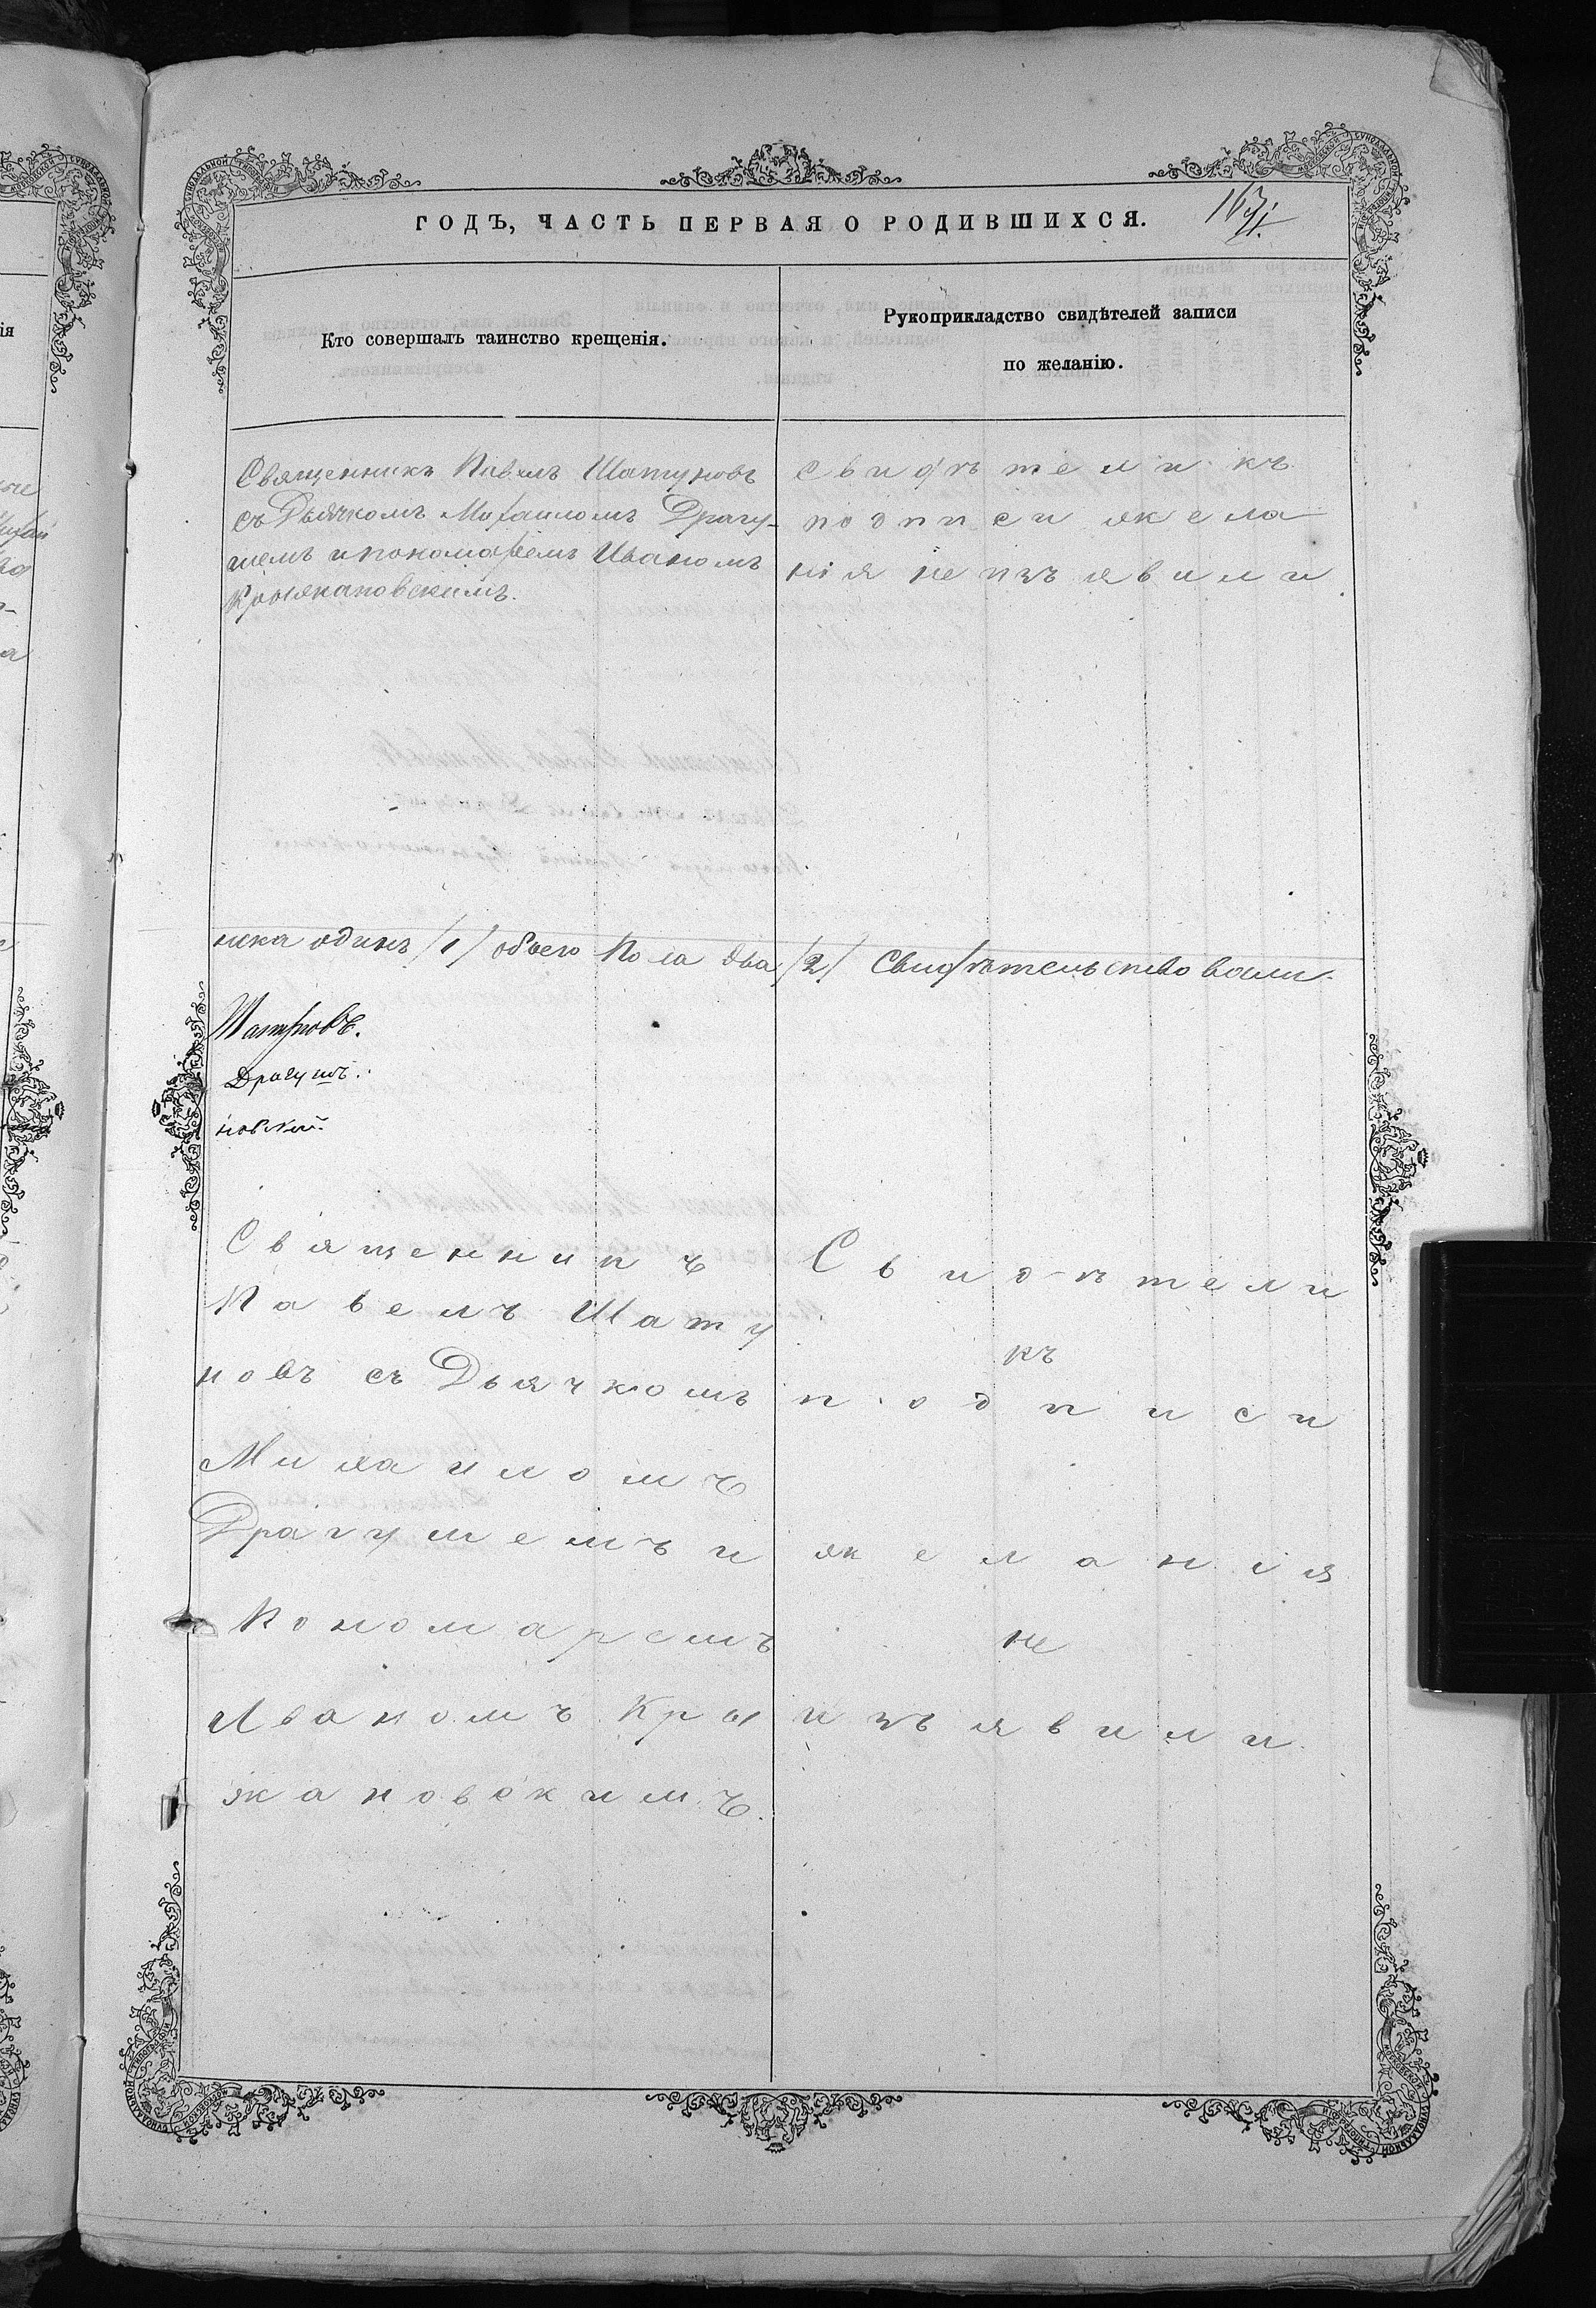 ГОДЪ, ЧАСТЬ ПЕРВАЯ О РОДИВШИХСЯ.
Кто совершалъ таинство крещенія.
Рукоприкладство свидѣтелей записи
по желанію.
Священникъ Павелъ Шатуновъ
съ Дьячкомъ Михаиломъ Драгу-
шемъ и пономаремъ Иваномъ
Крыжановскимъ.
Свидѣтели къ
подписи жела
нія не изъявили
ска одинъ /1/ обоего пола два /2/ Свидѣтельствовали
Шатуновъ.
Драгушъ.
новскій.
Священникъ
Павелъ Шату
новъ съ Дьячкомъ
Михаиломъ
Драгушемъ и
Пономаремъ
Иваномъ Кры
жановскимъ.
Свидѣтели
къ
подписи
желанія
не
изъявили